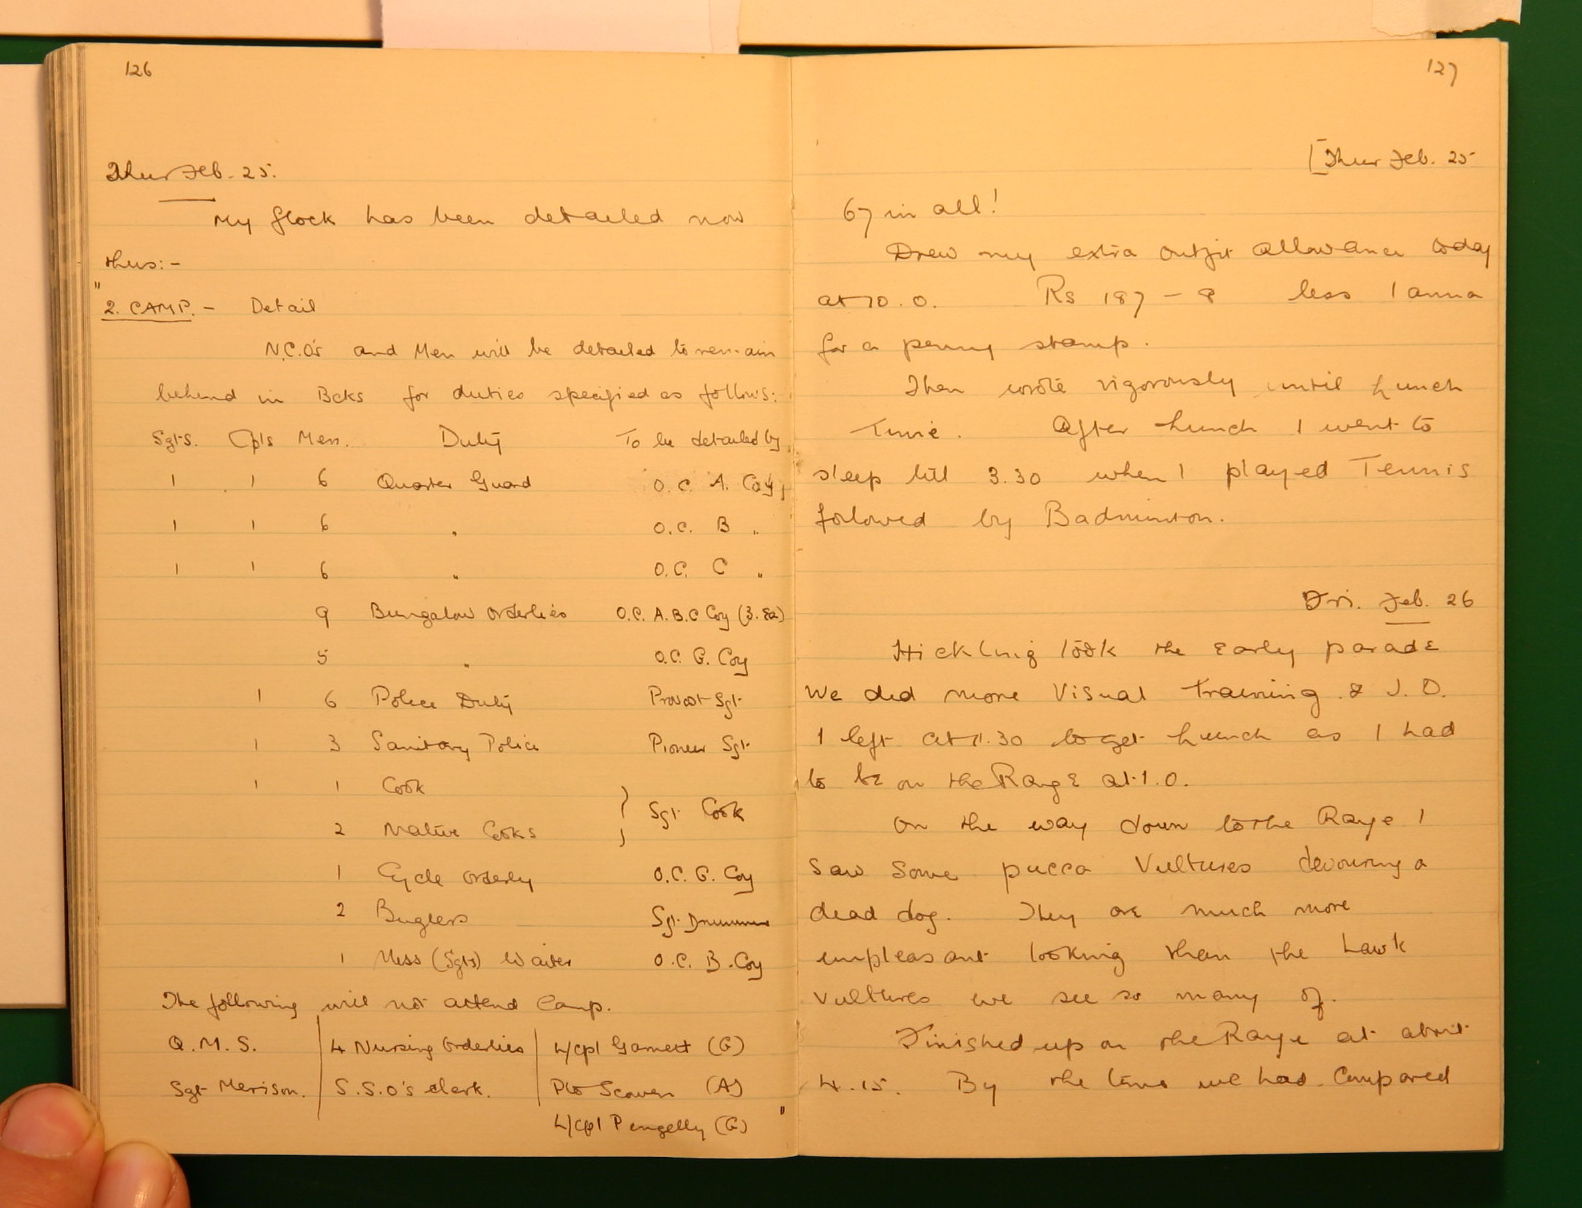 126
Thur Feb. 25.
My flock has been detailed now
thus:-
"2. CAMP. - Detail
N.C.O's and Men will be detailed to remain
behind in Bcks for duties specified as follows:
Sgts. Cpls Men. Duty To be detailed by
1 1 6 Quarter Guard O.C. A. Coy
1 1 6 " O.C. B "
1 1 6 " O.C. C "
9 Bungalow Orderlies O.C. A.B.C Coy (3. Ea)
5 " O.C. G. Coy
1 6 Police Duty Provost Sgt.
1 3 Sanitary Police Pioneer Sgt.
1 1 Cook } Sgt. Cook
2 Native Cooks
1 Cycle Orderly O.C. G. Coy
2 Buglers Sgt. Drummer
1 Mess (Sgts) Waiter O.C. B. Coy
The following will not attend Camp.
Q.M.S. | 4 Nursing Orderlies | L/Cpl Garnett (G)
Sgt. Merison. | S.S.O's clerk. | Pte Scaven (A)
L/Cpl Pengelly (G) "
127
[Thur Feb. 25
67 in all!
Drew my extra outfit allowance today
at 10.0. Rs 187 - 8 less 1 anna
for a penny stamp.
Then wrote vigorously until Lunch
Time. After Lunch I went to
sleep till 3.30 when I played Tennis
followed by Badminton.
Fri. Feb. 26
Hickling took the early parade
We did more Visual Training & J.D.
I left at 11.30 to get Lunch as I had
to be on the Range at 1.0.
On the way down to the Range I
saw some pucca Vultures devouring a
dead dog. They are much more
unpleasant looking than the hawk
vultures we see so many of.
Finished up on the Range at about
4.15. By the time we had compared